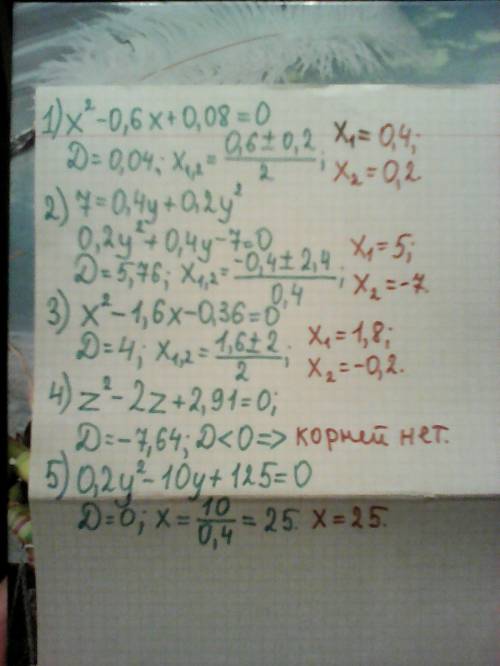 1) x² - 0,6x + 0,08 = 0
D = 0,04; x₁,₂ = (0,6 ± 0,2)/2; x₁ = 0,4; x₂ = 0,2
2) 7 = 0,4y + 0,2y²
0,2y² + 0,4y - 7 = 0
D = 5,76; x₁,₂ = (-0,4 ± 2,4)/0,4; x₁ = 5; x₂ = -7.
3) x² - 1,6x - 0,36 = 0
D = 4; x₁,₂ = (1,6 ± 2)/2; x₁ = 1,8; x₂ = -0,2.
4) z² - 2z + 2,91 = 0;
D = -7,64; D < 0 => корней нет.
5) 0,2y² - 10y + 125 = 0
D = 0; x = 10/0,4 = 25. x = 25.